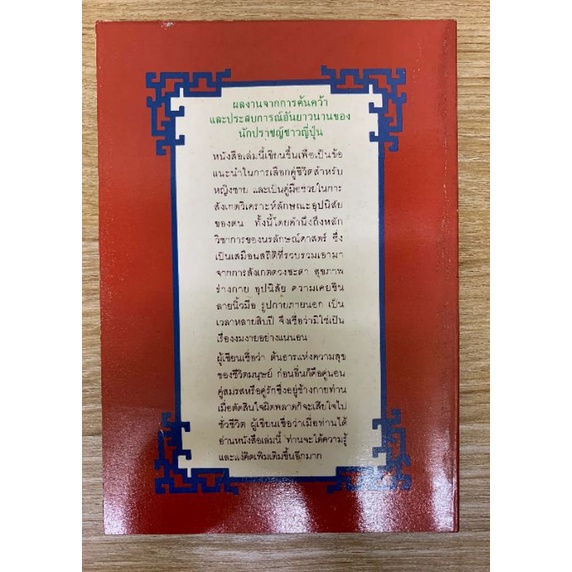 ผลงานจากการค้นคว้า
และประสบการณ์อันยาวนานของ
นักปราชญ์ชาวญี่ปุ่น
หนังสือเล่มนี้เขียนขึ้นเพื่อเป็นข้อ
แนะนำในการเลือกคู่ชีวิตสำหรับ
หญิงชาย และเป็นคู่มือช่วยในการ
สังเกตวิเคราะห์ลักษณะอุปนิสัย
ของคน ทั้งนี้โดยคำนึงถึงหลัก
วิชาการของนรลักษณ์ศาสตร์ ซึ่ง
เป็นเสมือนสถิติที่รวบรวมเอามา
จากการสังเกตดวงชะตา สุขภาพ
ร่างกาย อุปนิสัย ความเคยชิน
ลายนิ้วมือ รูปกายภายนอก เป็น
เวลาหลายสิบปี จึงเชื่อว่ามิใช่เป็น
เรื่องงมงายอย่างแน่นอน
ผู้เขียนเชื่อว่า ต้นธารแห่งความสุข
ของชีวิตมนุษย์ ก่อนอื่นก็คือคู่นอน
คู่สมรสหรือคู่รักซึ่งอยู่ข้างกายท่าน
เมื่อตัดสินใจผิดพลาดก็จะเสียใจไป
ชั่วชีวิต ผู้เขียนเชื่อว่าเมื่อท่านได้
อ่านหนังสือเล่มนี้ ท่านจะได้ความรู้
และแง่คิดเพิ่มเติมขึ้นอีกมาก